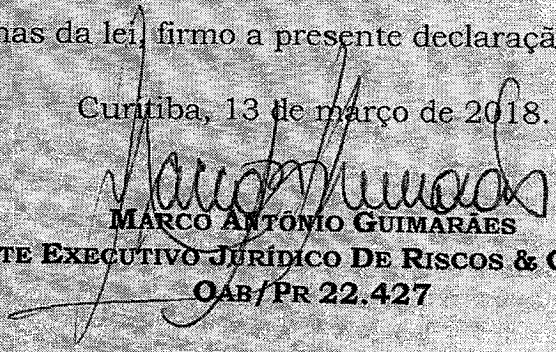 nas da lei, firmo a presente declaraçã
Curitiba, 13 de março de 2018.
MARCO ANTÔNIO GUIMARÃES
TE EXECUTIVO JURÍDICO DE RISCOS &
OAB/PR 22.427